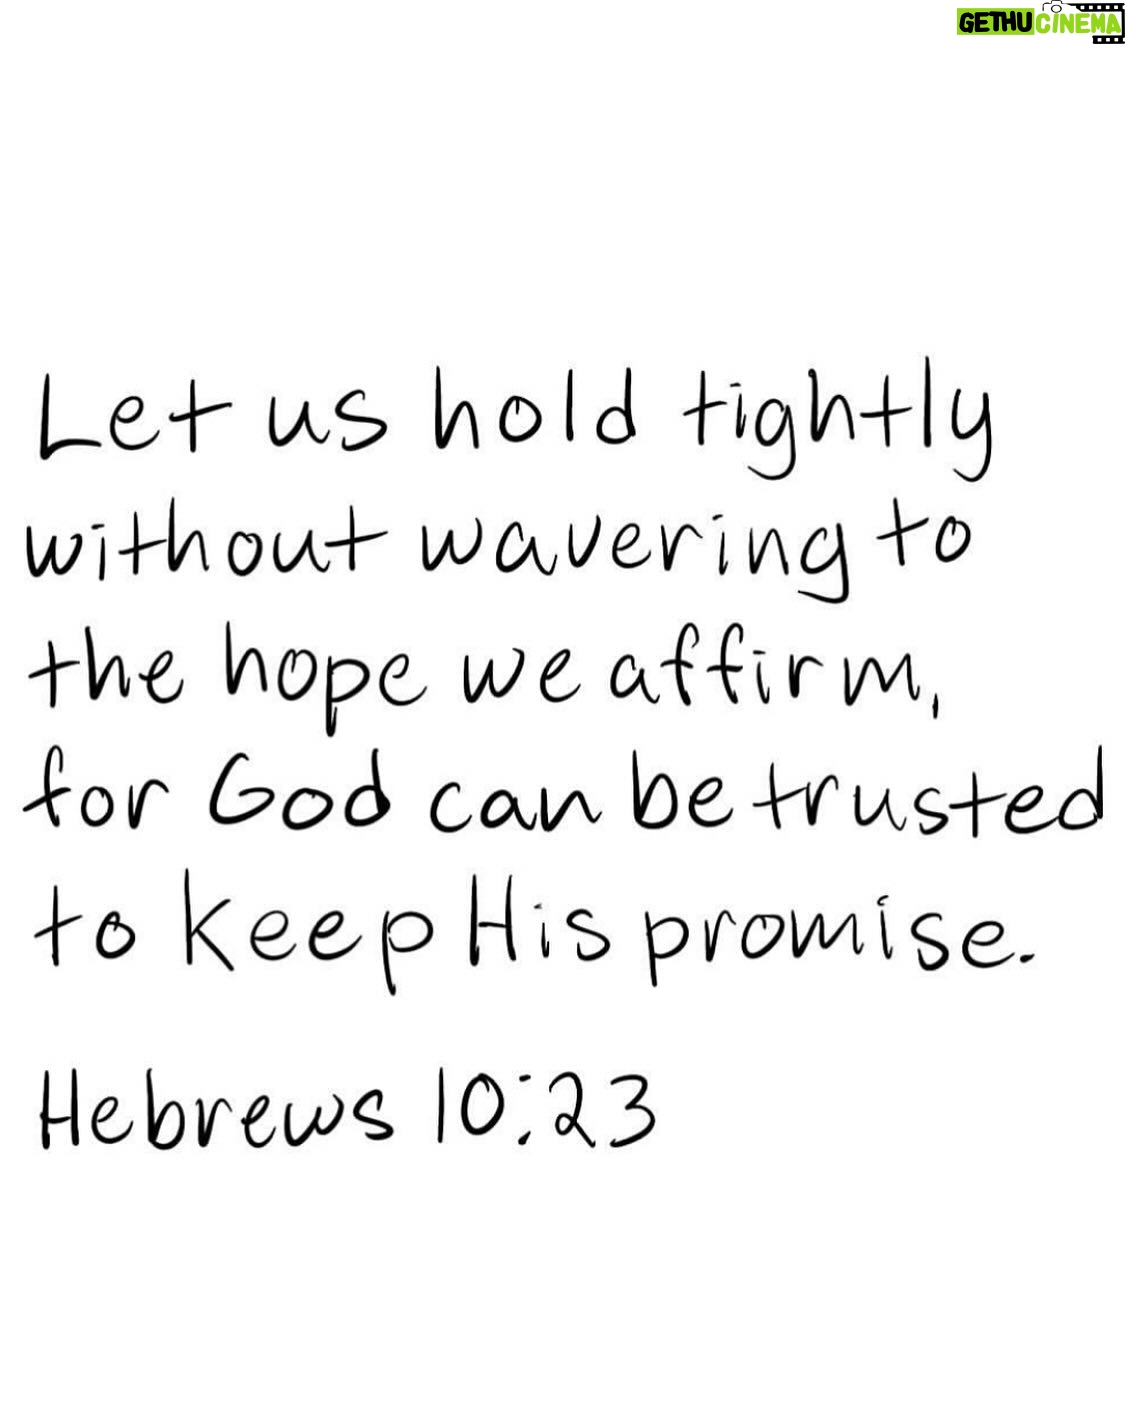 GETHUCINEMA
Let us hold tightly
without wavering to
the hope we affirm,
for God can be trusted
to keep His promise.
Hebrews 10:23